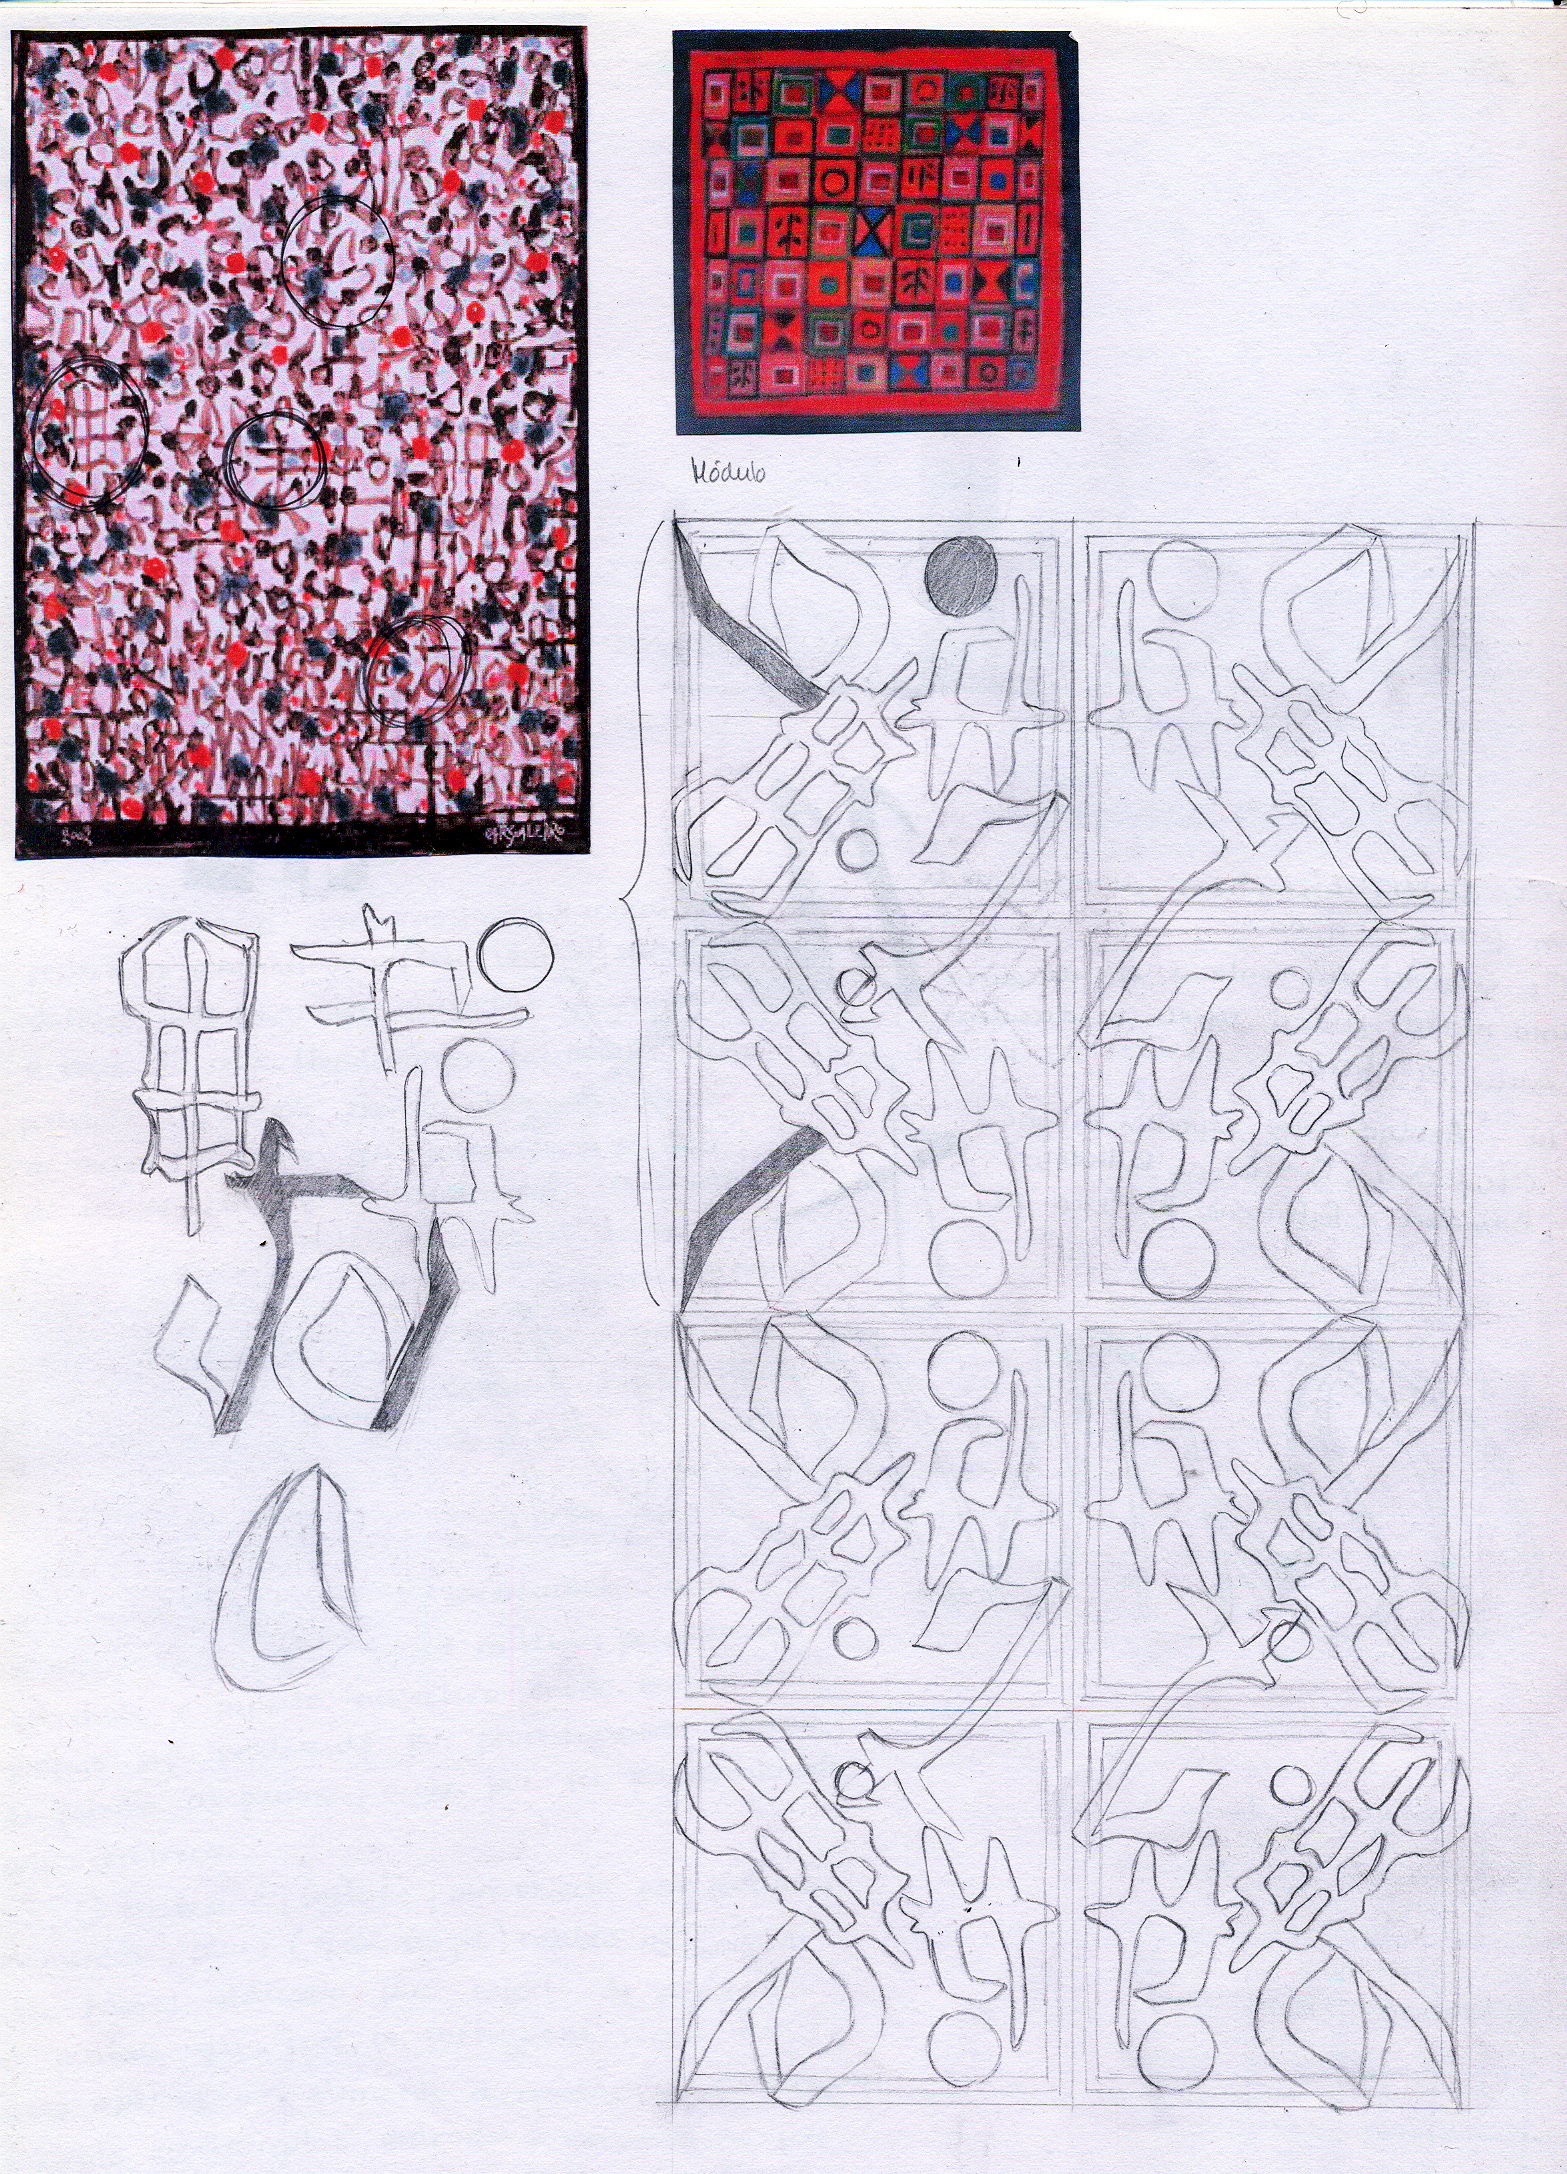 2002
CARGALEIRO
Módulo